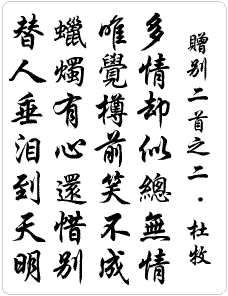 贈別二首之二・杜牧
多情却似總無情
唯覺樽前笑不成
蠟燭有心還惜別
替人垂淚到天明